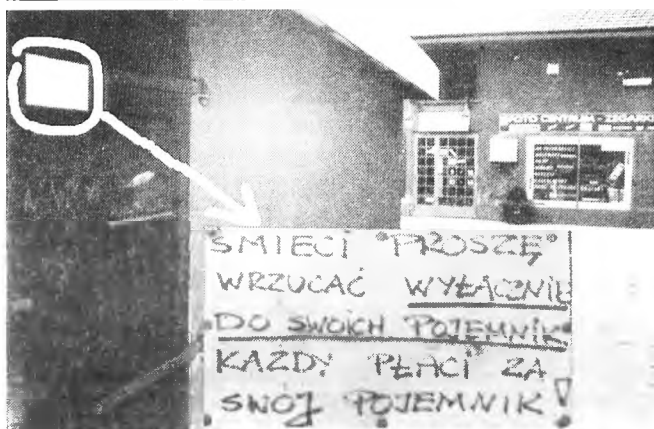 FOTO CENTRUM - ZEGARKI
ŚMIECI "PROSZĘ"
WRZUCAĆ WYŁĄCZNIE
DO SWOICH POJEMNIK
KAŻDY PŁACI ZA
SWÓJ POJEMNIK!